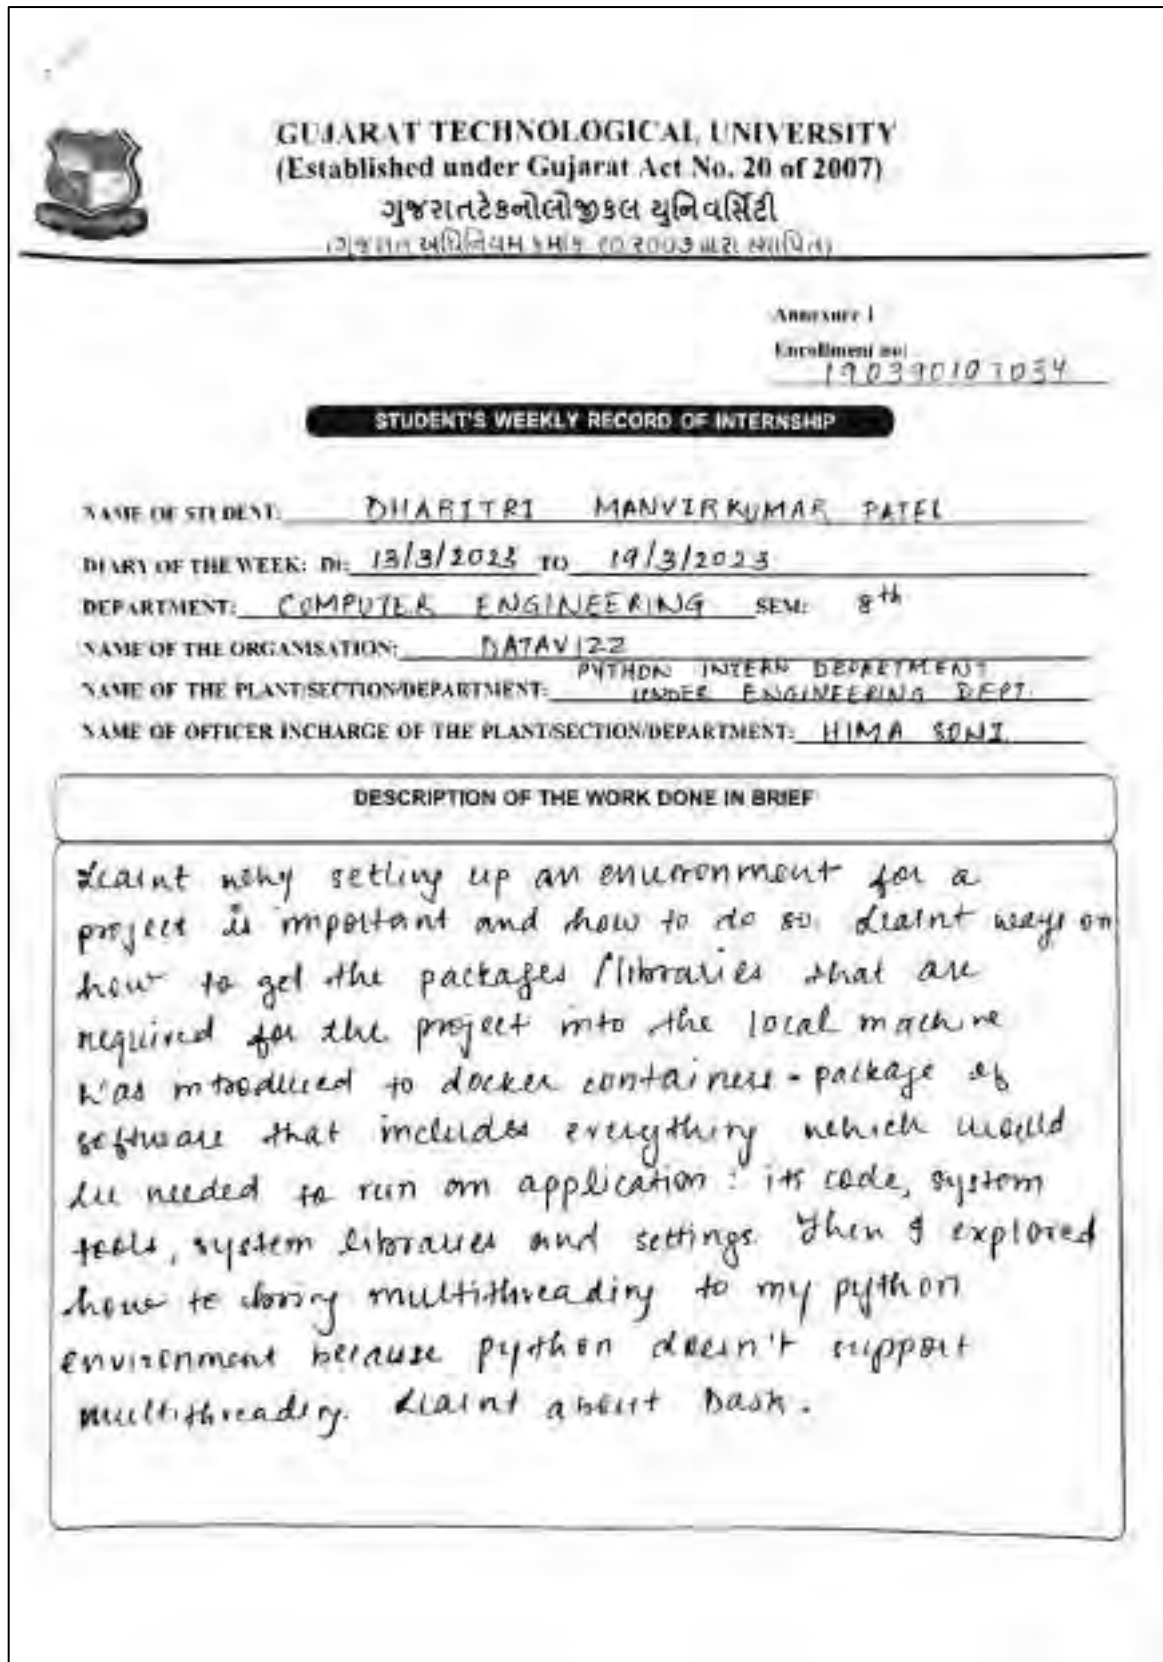 GUJARAT TECHNOLOGICAL UNIVERSITY
(Established under Gujarat Act No. 20 of 2007)
ગુજરાતટેકનોલોજીકલ યુનિવર્સિટી
(ગુજરાત અધિનિયમ ક્રમાંક ૨૦ ૨૦૦૭ દ્વારા સ્થાપિત)
Annexure I
Enrollment no:
190390107034
STUDENT'S WEEKLY RECORD OF INTERNSHIP
NAME OF STUDENT: DHARITRI MANVIRKUMAR PATEL
DIARY OF THE WEEK: Dt: 13/3/2023 TO 19/3/2023
DEPARTMENT: COMPUTER ENGINEERING SEM: 8th
NAME OF THE ORGANISATION: DATAVIZZ
PYTHON INTERN DEPARTMENT
NAME OF THE PLANT/SECTION/DEPARTMENT: UNDER ENGINEERING DEPT.
NAME OF OFFICER INCHARGE OF THE PLANT/SECTION/DEPARTMENT: HIMA SONI
DESCRIPTION OF THE WORK DONE IN BRIEF
Learnt why setting up an environment for a
project is important and how to do so. Learnt ways on
how to get the packages / libraries that are
required for the project into the local machine
Was introduced to docker containers - package of
software that includes everything which would
be needed to run an application : its code, system
tools, system libraries and settings. Then I explored
how to bring multithreading to my python
environment because python doesn't support
multithreading. Learnt about Dask.